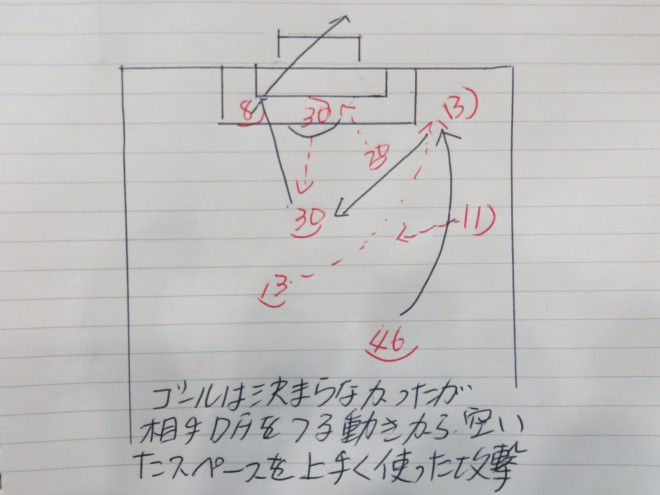 8)
30
13)
25
30
11)
13
46
ゴールは決まらなかったが
相手DFをつる動きから空い
たスペースを上手く使った攻撃